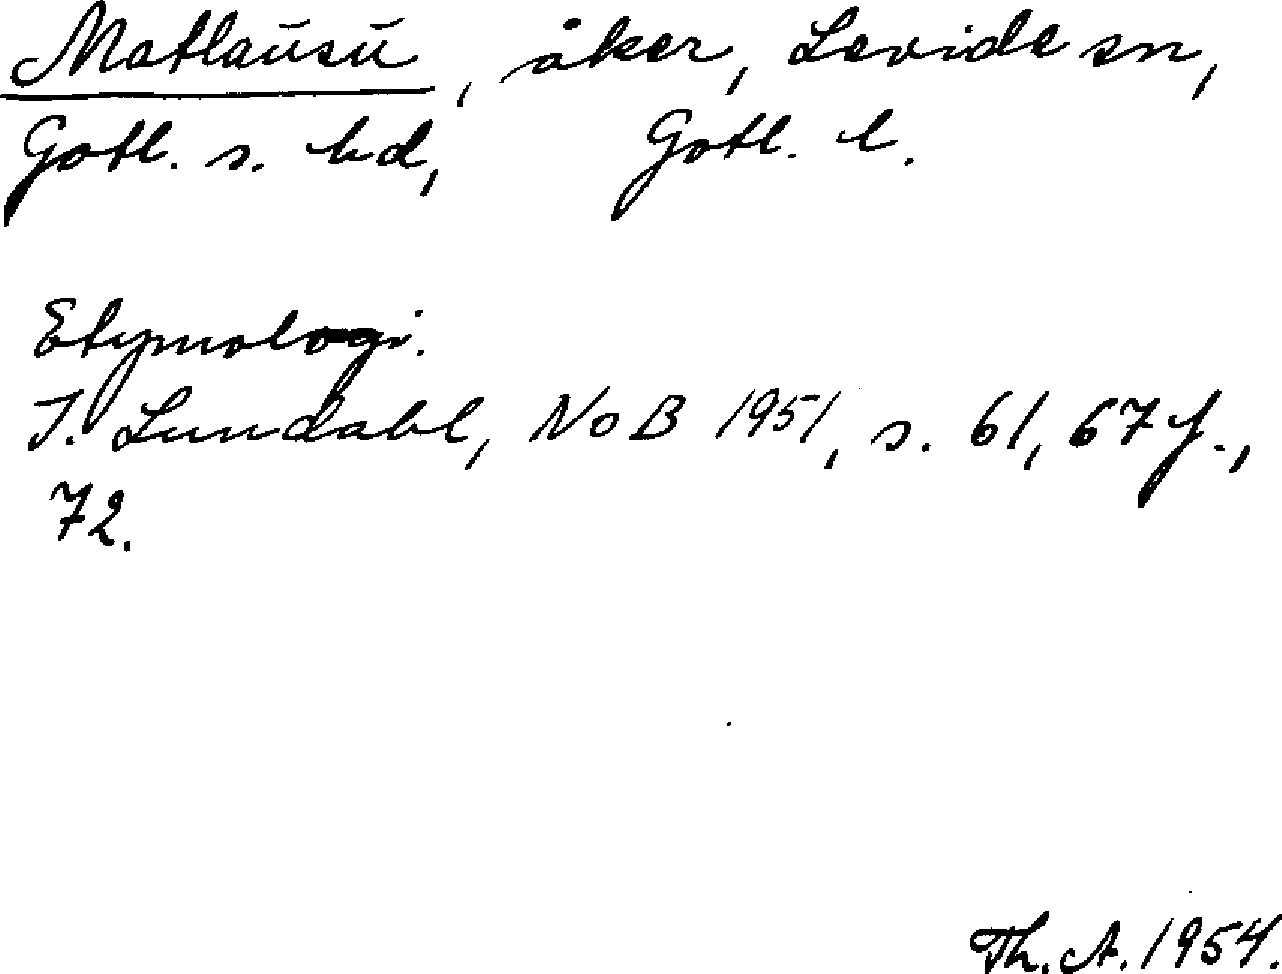 Matlaūsū, åker, Levide sn,
Gotl. s. hd, Gotl. l.
Etymologi.
I. Lundahl, NoB 1951, s. 61, 67 f.,
72.
Th. A. 1954.